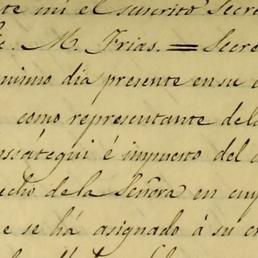 te mí el suscrito Secre
e. M. Frias. = Secre
nimo dia presente en su
como representante de la
nsátegui é impuesto del
cho de la Señora en
e se há asignado á su